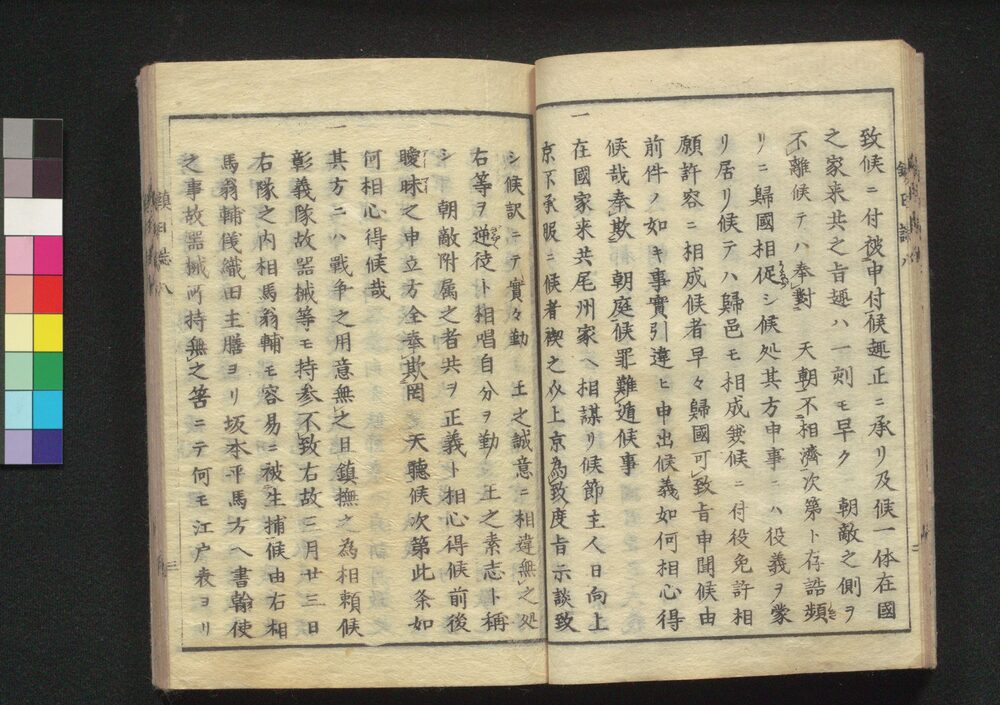 致候ニ付被申付候趣正ニ承リ及候一体在國
之家来共之旨趣ハ一刻モ早ク　朝敵之側ヲ
不離候テハ奉對　天朝不相濟次第ト存詰頻
リニ歸國相促シ候処其方申事ニハ役義ヲ蒙
リ居リ候テハ歸邑モ相成兼候ニ付役免許相
願許容ニ相成候者早々歸國可致旨申聞候由
前件ノ如キ事實引違ヒ申出候義如何相心得
候哉奉欺　朝庭候罪難遁候事
一
在國家来共尾州家ヘ相謀リ候節主人日向上
京不承眠ニ候者禊之以上京為致度旨示談致
シ候訳ニテ實々勤　王之誠意ニ相違無之処
右等ヲ逆徒ト相唱自分ヲ勤　王之素志ト稱
シ　朝敵附属之者共ヲ正義ト相心得候前後
曖昧之申立方全奉欺罔　天聽候次第此条如
何相心得候哉
一
其方ニハ戦争之用意無之且鎮撫之為相頼候
彰義隊故器械等モ持参不致右故三月廿三日
右隊之内相馬翁輔モ容易ニ被生捕候由右相
馬翁輔儀織田主膳ヨリ坂本平馬方ヘ書翰使
之事故器械所持無之筈ニテ何モ江戸表ヨリ
鎮日誌八
二
鎮日誌八
三